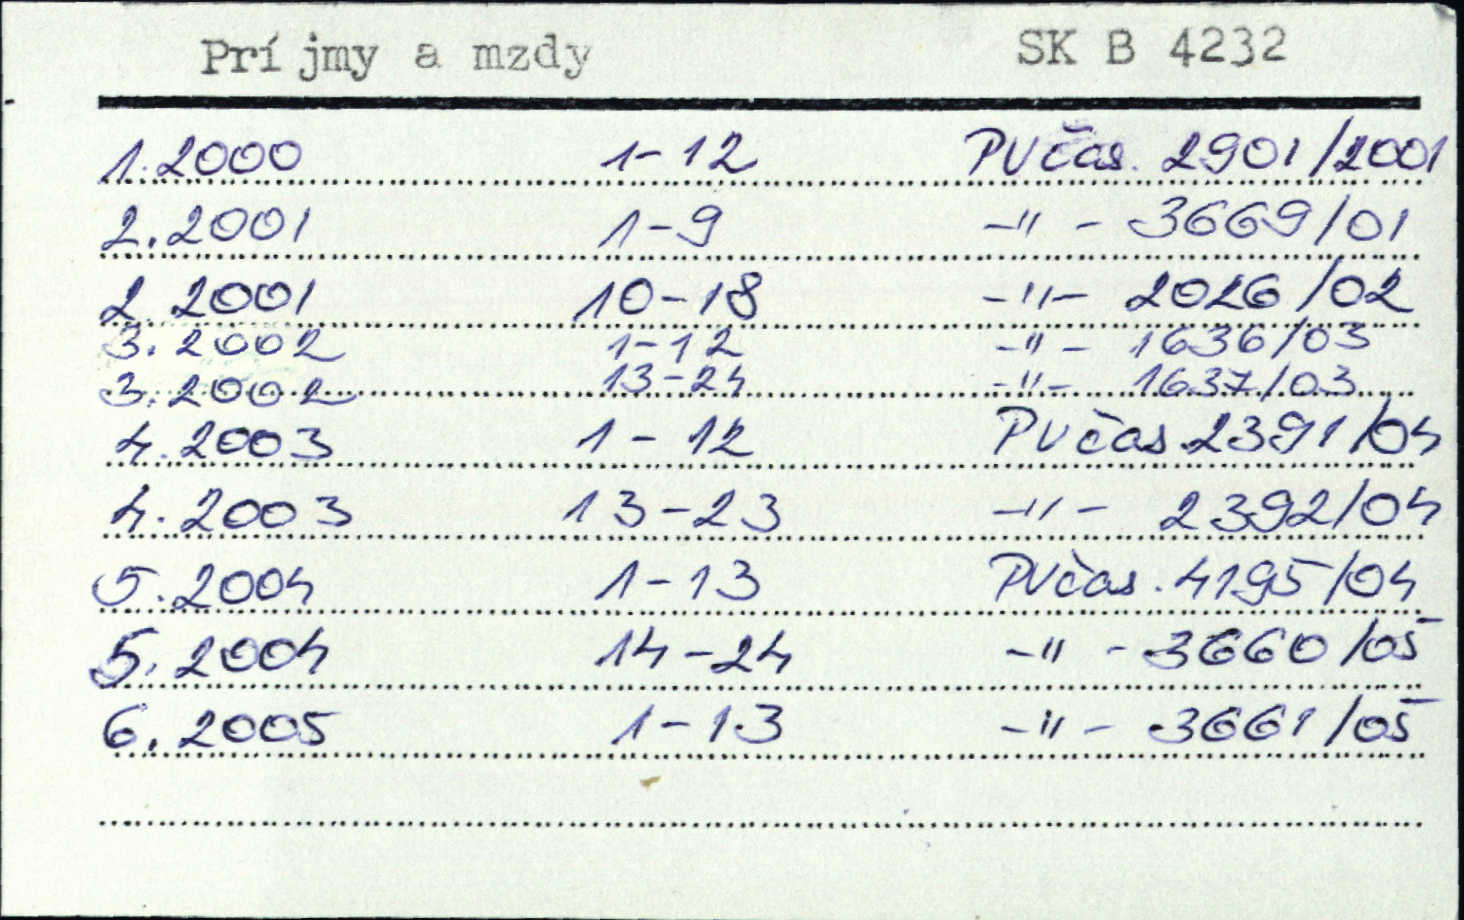 Príjmy a mzdy SK B 4232
1.2000 1-12 PVčas. 2901/2001
2.2001 1-9 -"- 3669/01
2.2001 10-18 -"- 2026/02
3.2002 1-12 -"- 1636/03
3.2002 13-24 -"- 1637/03
4.2003 1-12 PVčas 2391/04
4.2003 13-23 -"- 2392/04
5.2004 1-13 PVčas. 4195/04
5.2004 14-24 -"- 3660/05
6.2005 1-13 -"- 3661/05